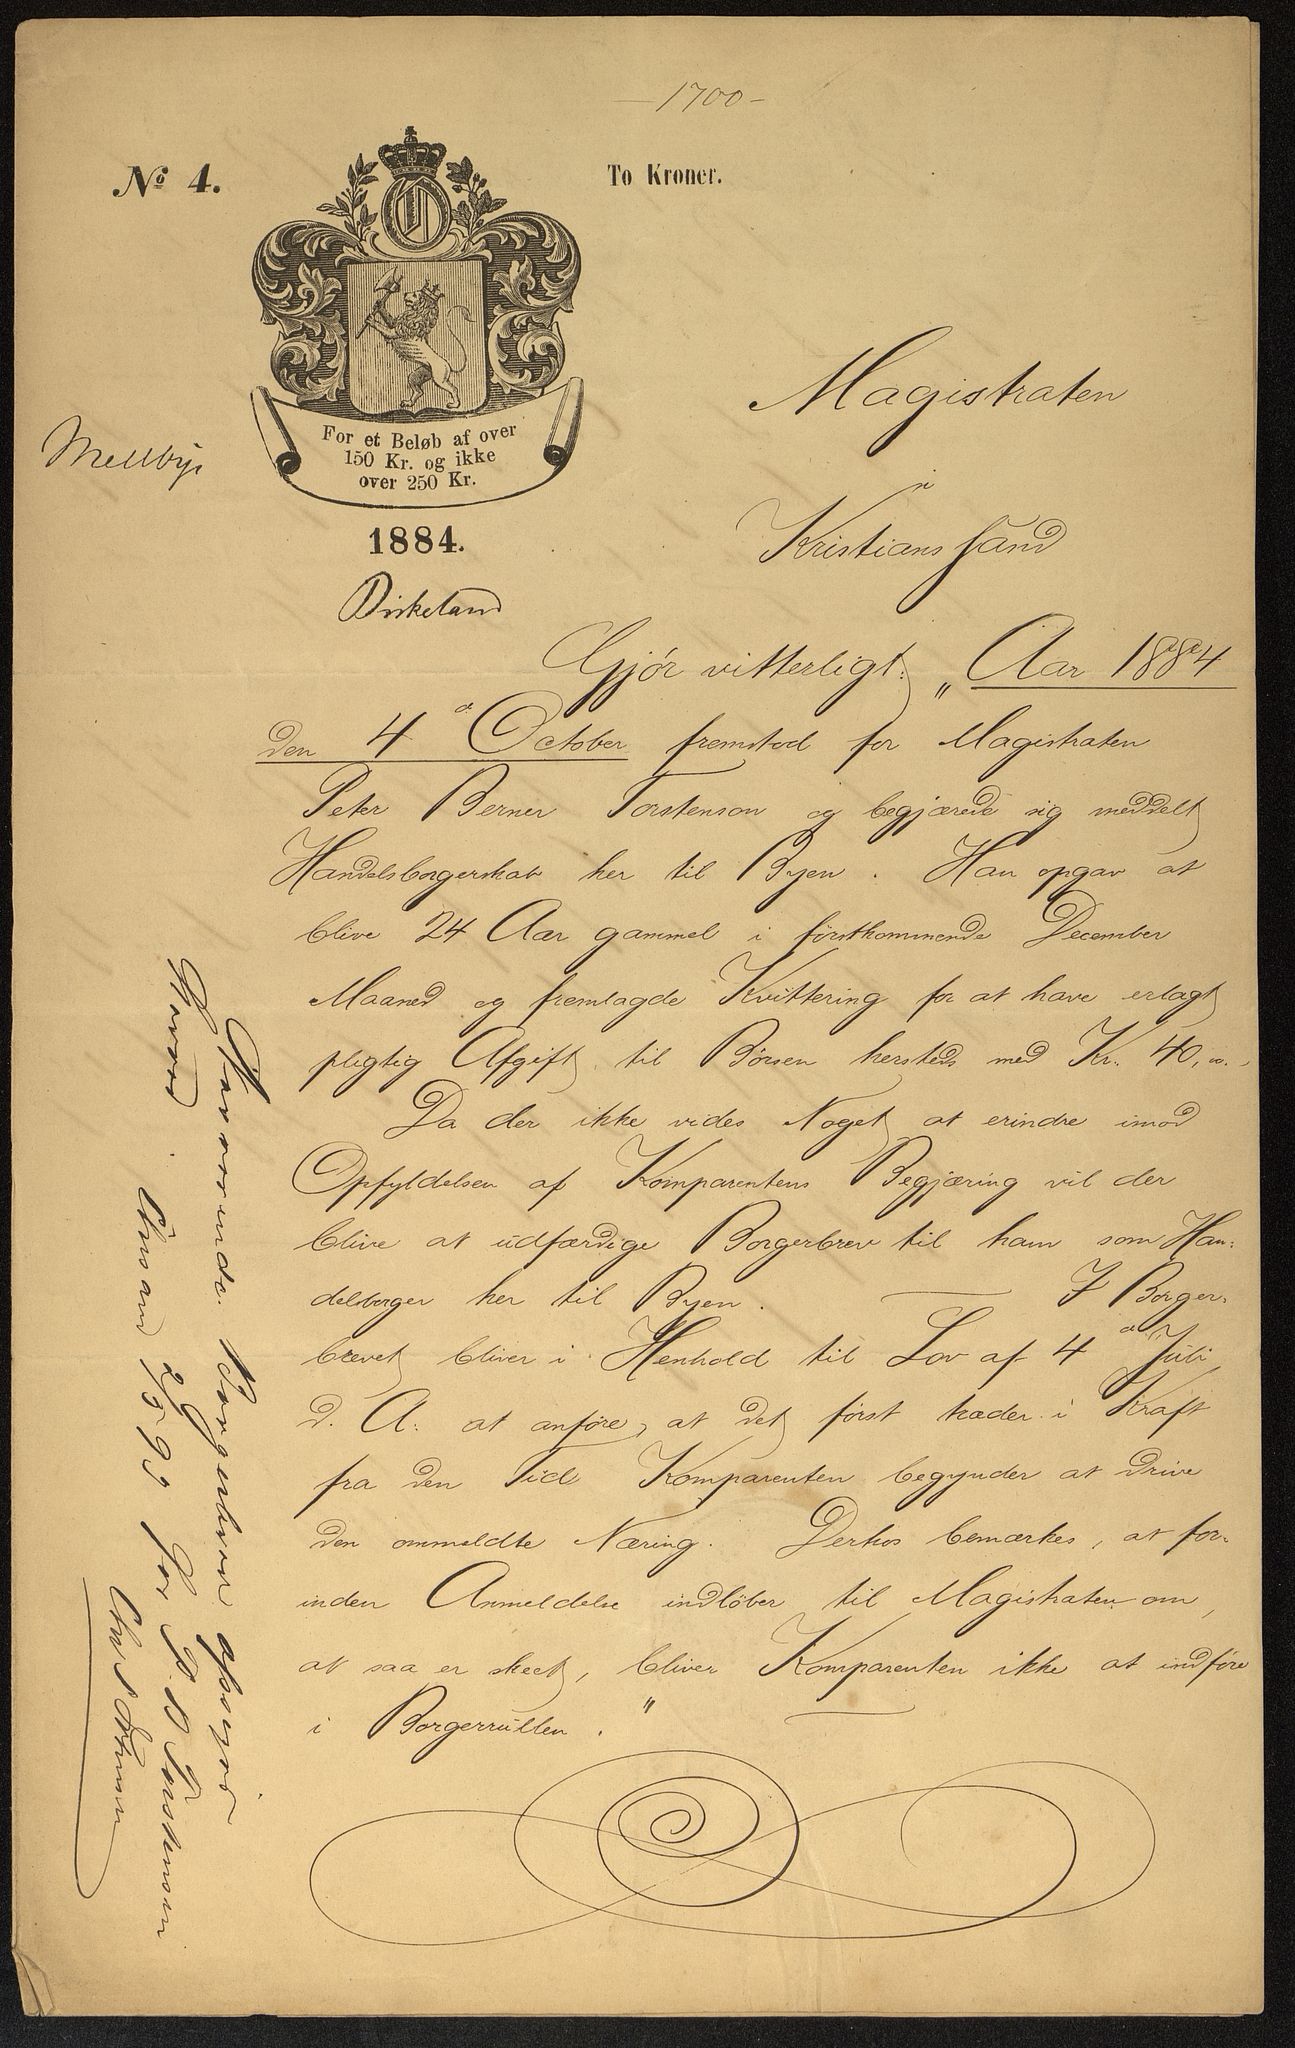 - 1700 -
No 4.
To Kroner.
For et Beløb af over
150 Kr. og ikke
over 250 Kr.
1884.
Mellbye
Birkeland
Magistraten
i
Kristianssand
Gjör vitterligt: „Aar 1884
den 4 de October fremstod for Magistraten
Peter Berner Torstenson og begjærede sig meddelt
Handelsborgerskab her til Byen. Han opgav at
blive 24 Aar gammel i förstkommende December
Maaned og fremlagde Kvittering for at have erlagt
pligtig Afgift til Börsen hersteds med Kr. 40,00.
Da der ikke vides Noget at erindre imod
Opfyldelsen af Komparentens Begjæring vil der
blive at udfærdige Borgerbrev til ham som Han-
delsborger her til Byen. — I Borger-
brevet bliver i Henhold til Lov af 4 de Juli
d. A. at anföre, at det först træder i Kraft
fra den Tid Komparenten begynder at drive
den ommeldte Næring. Derhos bemærkes, at for-
inden Anmeldelse indlöber til Magistraten om,
at saa er skeet, bliver Komparenten ikke at indföre
i Borgerrullen." —
Nærværende Borgerbrev opsiges
herved.
Chrsand 2/5 93 for P. B. Torstensen